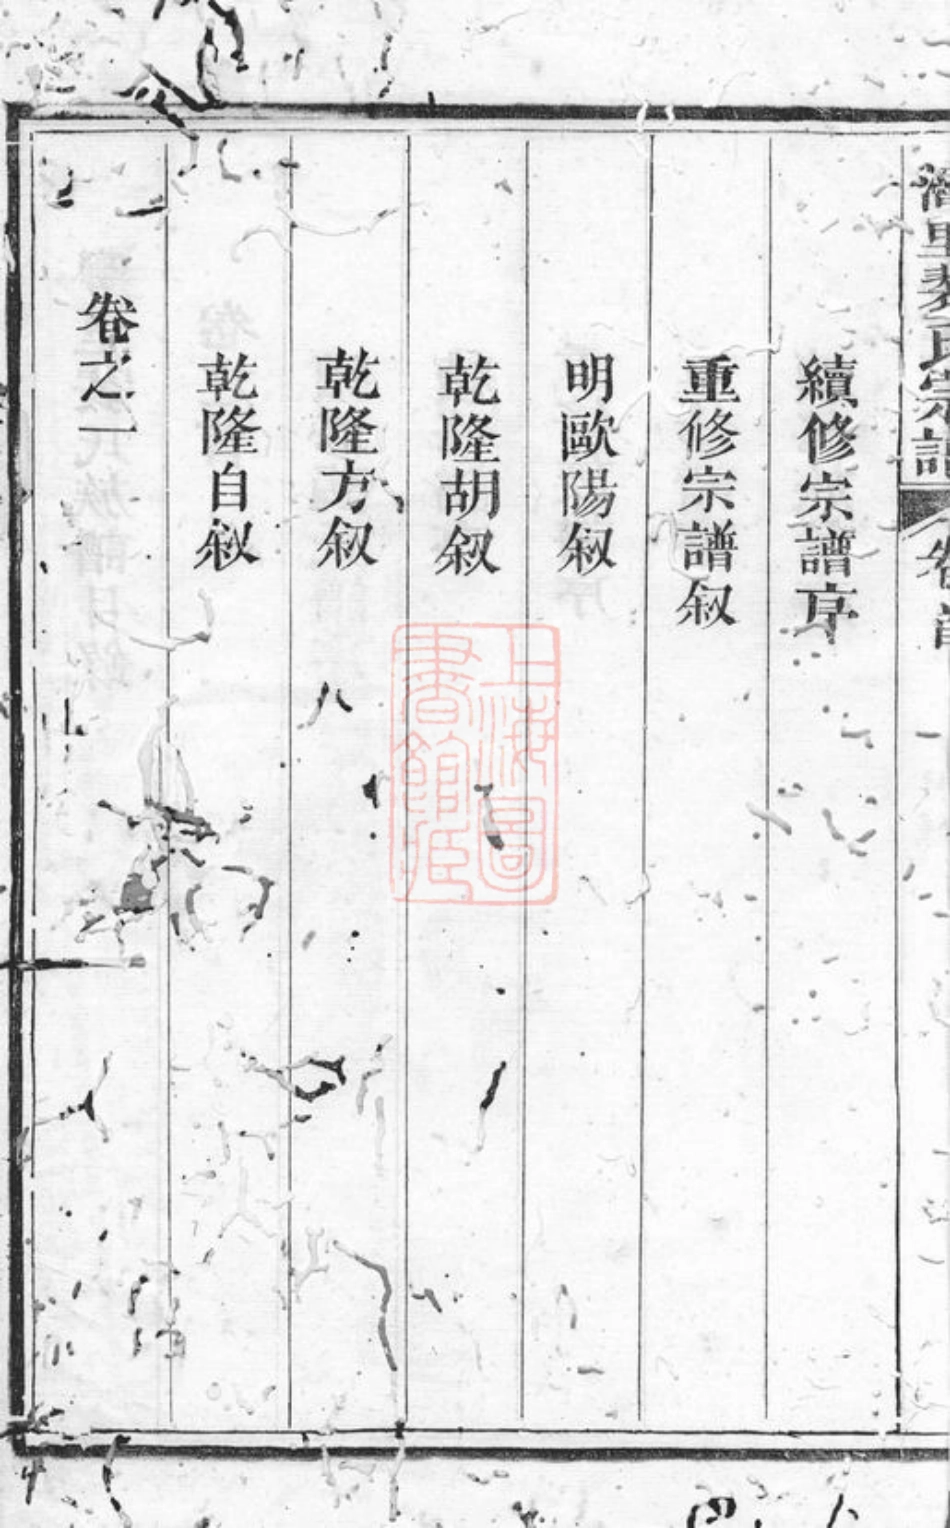 氏宗譜
卷首
續修宗譜序
重修宗譜叙
明歐陽叙
乾隆胡叙
乾隆方叙
乾隆自叙
卷之一
上海圖
書館藏